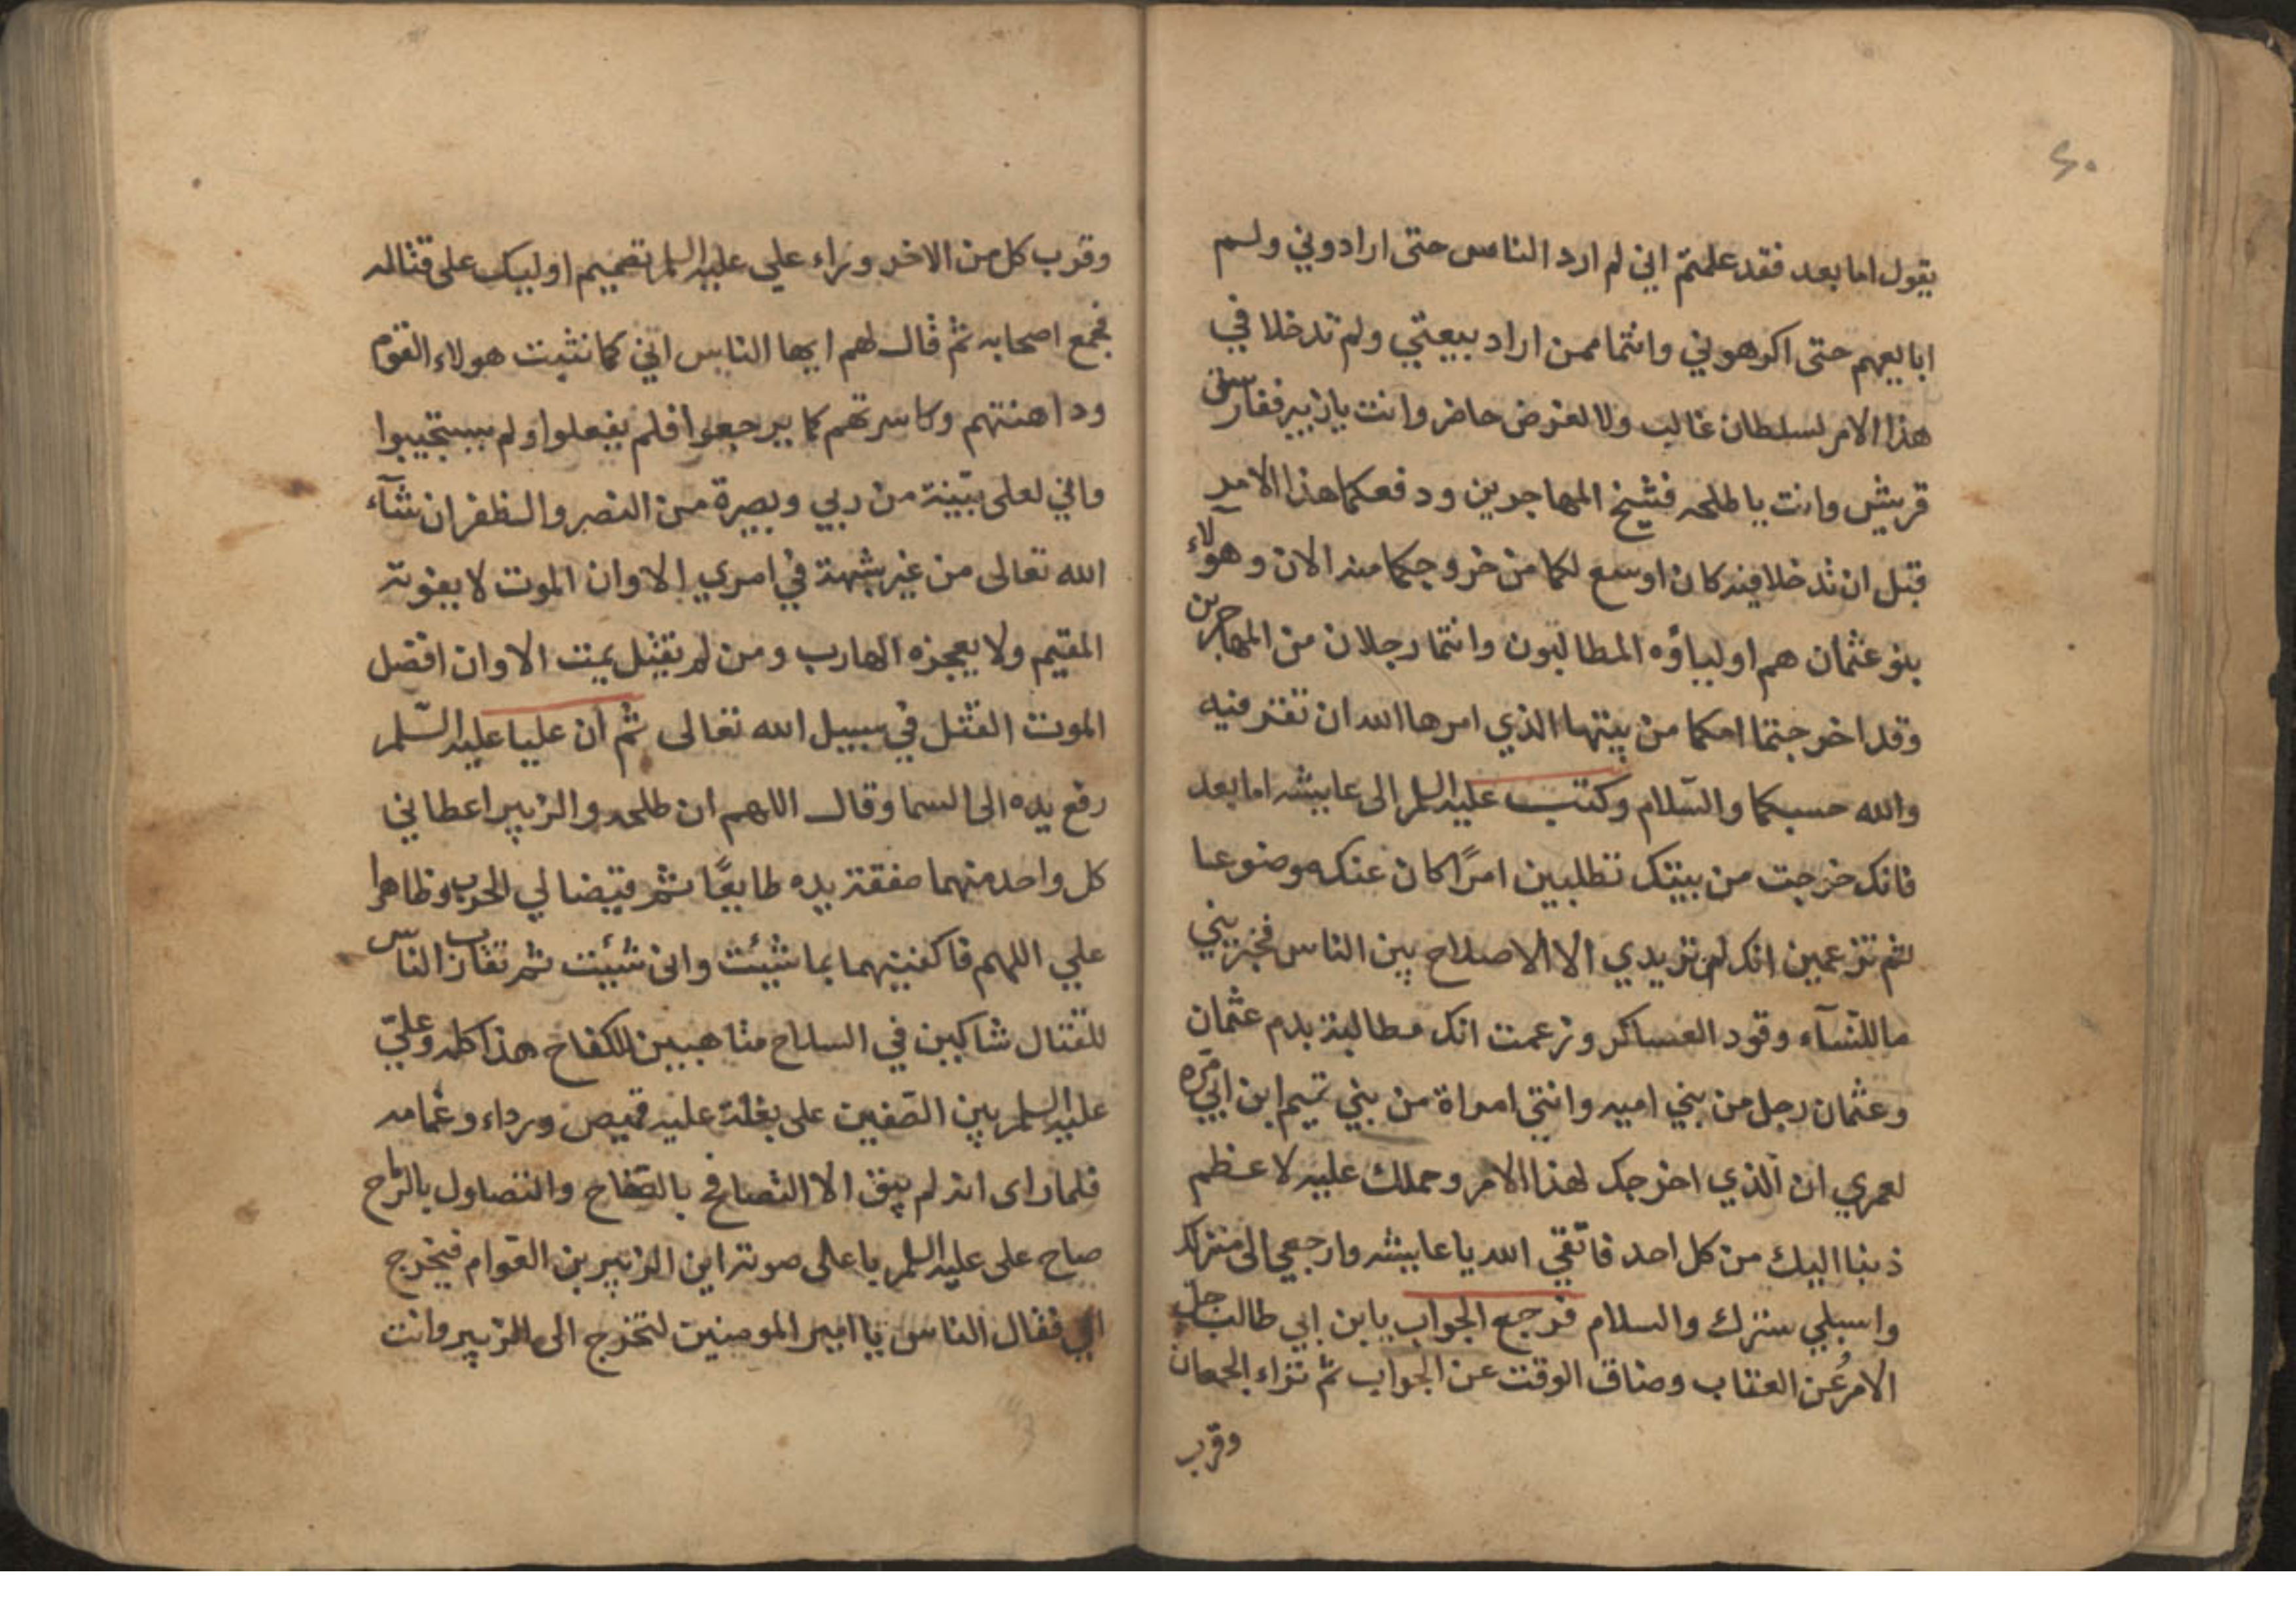 ٤٠
يقول اما بعد فقد علمتم اني لم ارد الناس حتى ارادوني ولم
ابايعهم حتى اكرهوني وانتما ممن اراد ببيعتي ولم تدخلا في
هذا الامر لسلطان غالب ولا لعرض حاضر وانت يا زبير ففارس
قريش وانت يا طلحه فشيخ المهاجرين ودفعكما هذا الامر
قبل ان تدخلا فيه كان اوسع لكما من خروجكما منه الان وهولآء
بنو عثمان هم اولياؤه المطالبون وانتما رجلان من المهاجرين
وقد اخرجتما امكما من بيتها الذي امرها الله ان تقر فيه
والله حسبكما والسّلام وكتب عليه السلم الى عايشه اما بعد
فانك خرجت من بيتك تطلبين امرًا كان عنك موضوعا
ثم تزعمين انك لن تريدي الا الاصلاح بين الناس فخبريني
ما للنّسآء وقود العساكر وزعمت انك مطالبة بدم عثمان
وعثمان رجل من بني اميه وانتي امراة من بني تيم ابن ابي مره
لعمري ان الذي اخرجك لهذا الامر وحملك عليه لاعظم
ذنبا اليك من كل احد فاتّقي الله يا عايشه وارجعي الى منزلك
واسبلي سترك والسلام فرجع الجواب يا بن ابي طالب جل
الامر عن العتاب وضاق الوقت عن الجواب ثم تراء الجمعان
وقرب
وقرب كل من الاخر وراء علي عليه السلم تصميم اوليك على قتاله
فجمع اصحابه ثم قال لهم ايها الناس اني كما نثيت هولاء القوم
وداهنتهم وكاسرتهم كما يرجعوا فلم يفعلوا ولم يستجيبوا
واني لعلى بيّنة من ربي وبصيرة من النصر والظفر ان شآء
الله تعالى من غير شبهة في امري الا وان الموت لا يفوته
المقيم ولا يعجزه الهارب ومن لم يقتل يمت الا وان افضل
الموت القتل في سبيل الله تعالى ثم ان عليا عليه السّلم
رفع يده الى السما وقال اللهم ان طلحه والزبير اعطاني
كل واحد منهما صفقة يده طايعًا ثم قيضا لي الحرب وظاهرا
علي اللهم فاكفنيهما بما شئت وانى شئيت ثم تقارب الناس
للقتال شاكين في السلاح متاهبين للكفاح هذا كله وعليّ
عليه السلم بين الصّفين على بغلة عليه قميص ورداء وعمامه
فلما راى انه لم يبق الا التصافح بالصّفاح والتصاول بالرماح
صاح على عليه السلم باعلى صوته اين الزبير بن العوام فيخرج
الي فقال الناس يا امير المومنين لتخرج الى الزبير وانت